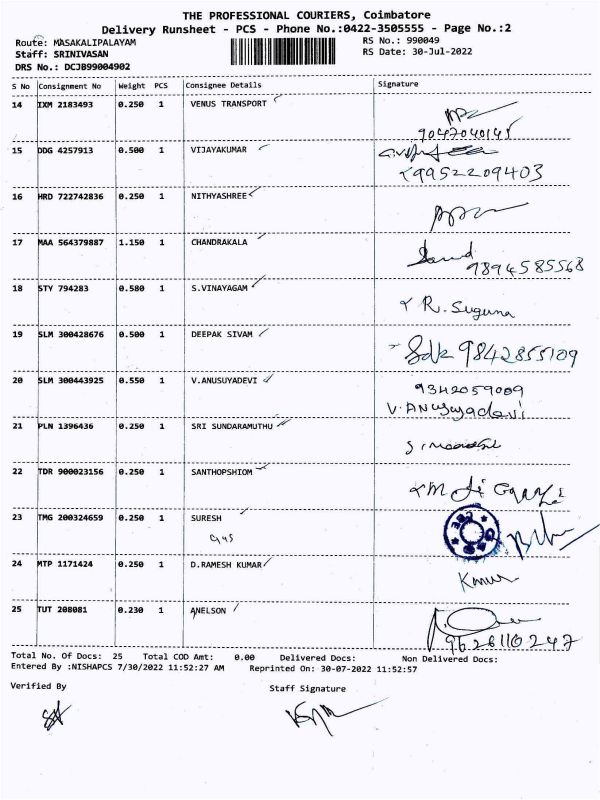 THE PROFESSIONAL COURIERS, Coimbatore
Delivery Runsheet - PCS - Phone No.:0422-3505555 - Page No.:2
Route: MASAKALIPALAYAM RS No.: 990049
Staff: SRINIVASAN RS Date: 30-Jul-2022
DRS No.: DCJB99004902
S No Consignment No Weight PCS Consignee Details Signature
14 IXM 2183493 0.250 1 VENUS TRANSPORT
9047040145
15 DDG 4257913 0.500 1 VIJAYAKUMAR
9952209403
16 HRD 722742836 0.250 1 NITHYASHREE
17 MAA 564379887 1.150 1 CHANDRAKALA
9894585568
18 STY 794283 0.580 1 S.VINAYAGAM
R. Suguna
19 SLM 300428676 0.500 1 DEEPAK SIVAM
9842855109
20 SLM 300443925 0.550 1 V.ANUSUYADEVI 9342059009
V.ANUsuyadevi
21 PLN 1396436 0.250 1 SRI SUNDARAMUTHU
22 TDR 900023156 0.250 1 SANTHOPSHIOM
23 TMG 200324659 0.250 1 SURESH
24 MTP 1171424 0.250 1 D.RAMESH KUMAR
Kumar
25 TUT 208081 0.230 1 ANELSON
9626110247
Total No. Of Docs: 25 Total COD Amt: 0.00 Delivered Docs: Non Delivered Docs:
Entered By :NISHAPCS 7/30/2022 11:52:27 AM Reprinted On: 30-07-2022 11:52:57
Verified By Staff Signature